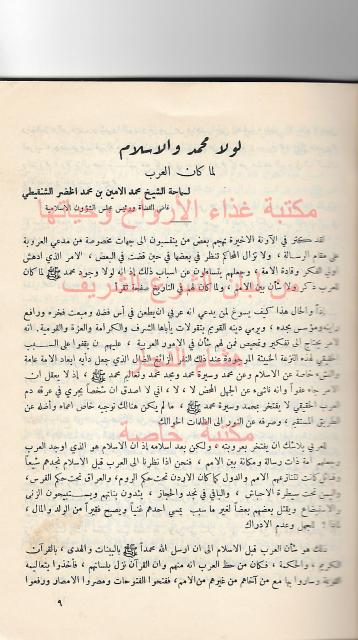 لولا محمد والاسلام
لما كان العرب
لسماحة الشيخ محمد الامين بن محمد الخضر الشنقيطي
قاضي القضاة ورئيس مجلس الشؤون الاسلامية
مكتبة غذاء الأرواح وحياتها
لقد كثر في الآونة الاخيرة تهجم بعض من ينتسبون الى جهات مخصوصة من مدعي العروبة
على مقام الرسالة ، ولا تزال المحاكم تنظر في بعضها في حين قضت في البعض ، الامر الذي ادهش
اولي الفكر وقادة الامة ، وجعلهم يتساءلون عن اسباب ذلك إذ انه لولا وجود محمد ﷺ لما كان
للعرب ذكر ولا شأن بين الامم ، ولما كان لهم في التاريخ صفحة تقرأ
إذاً والحال هذا كيف يسوغ لمن يدعي انه عربي ان يطعن في أس فضله ومبعث فخره ورافع
رايته ومؤسس مجده ، ويرمي دينه القويم بتقولات يأباها الشرف والكرامة والعزة والقومية. انه
لأمر يحتاج الى تفكير وتمحيص فمن لهم شأن في الامور العربية ، عليهم ان يقفوا على السبب
الحقيقي لهذه النزعة الخبيثة
خاصة عن الاسلام وعن محمد وسيرة محمد ومجد محمد وتعاليم محمد ﷺ ، إذ لا يعقل ان
الامر جاء عفواً وانه ناشئ عن الجهل المحض لا ، لا ، اني لا اصدق ان شخصاً يجري في عرقه دم
العرب الحقيقي لا يفتخر بمحمد وسيرة محمد ﷺ ، ما لم يكن هنالك توجيه خاص اعماه وأضله عن
الطريق المستقيم ، وصرفه عن النور الى الظلمات الحوالك
مكتبة خاصة
للعربي بلا شك ان يفتخر بعروبته ، ولكن بعد اسلامه إذ ان الاسلام هو الذي اوجد العرب
وجعلهم امة ذات رسالة ومكانة بين الامم ، فنحن اذا نظرنا الى العرب قبل الاسلام نجدهم شيعاً
تتنازعهم الامم والدول كما كان الاردن تحت حكم الروم، والعراق تحت حكم الفرس،
واليمن تحت سيطرة الاحباش ، والباقي في نجد والحجاز ، يئدون بناتهم ويستبيحون الزنى
ويقتل بعضهم بعضاً لغير ما سبب يمسي احدهم غنياً ويصبح فقيراً من الولد والمال ،
لماذا ؟ للجهل وعدم الادراك
ذلك هو شأن العرب قبل الاسلام الى ان ارسل الله محمداً ﷺ بالبينات والهدى ، بالقرآن
الكريم ، والحكمة ، فكان من حظ العرب انه منهم وان القرآن نزل بلسانهم ، فأخذوا بتعاليمه
وساروا بها مع من آخاهم من غيرهم من الامم، ففتحوا الفتوحات ومصروا الامصار ورفعوا
٩